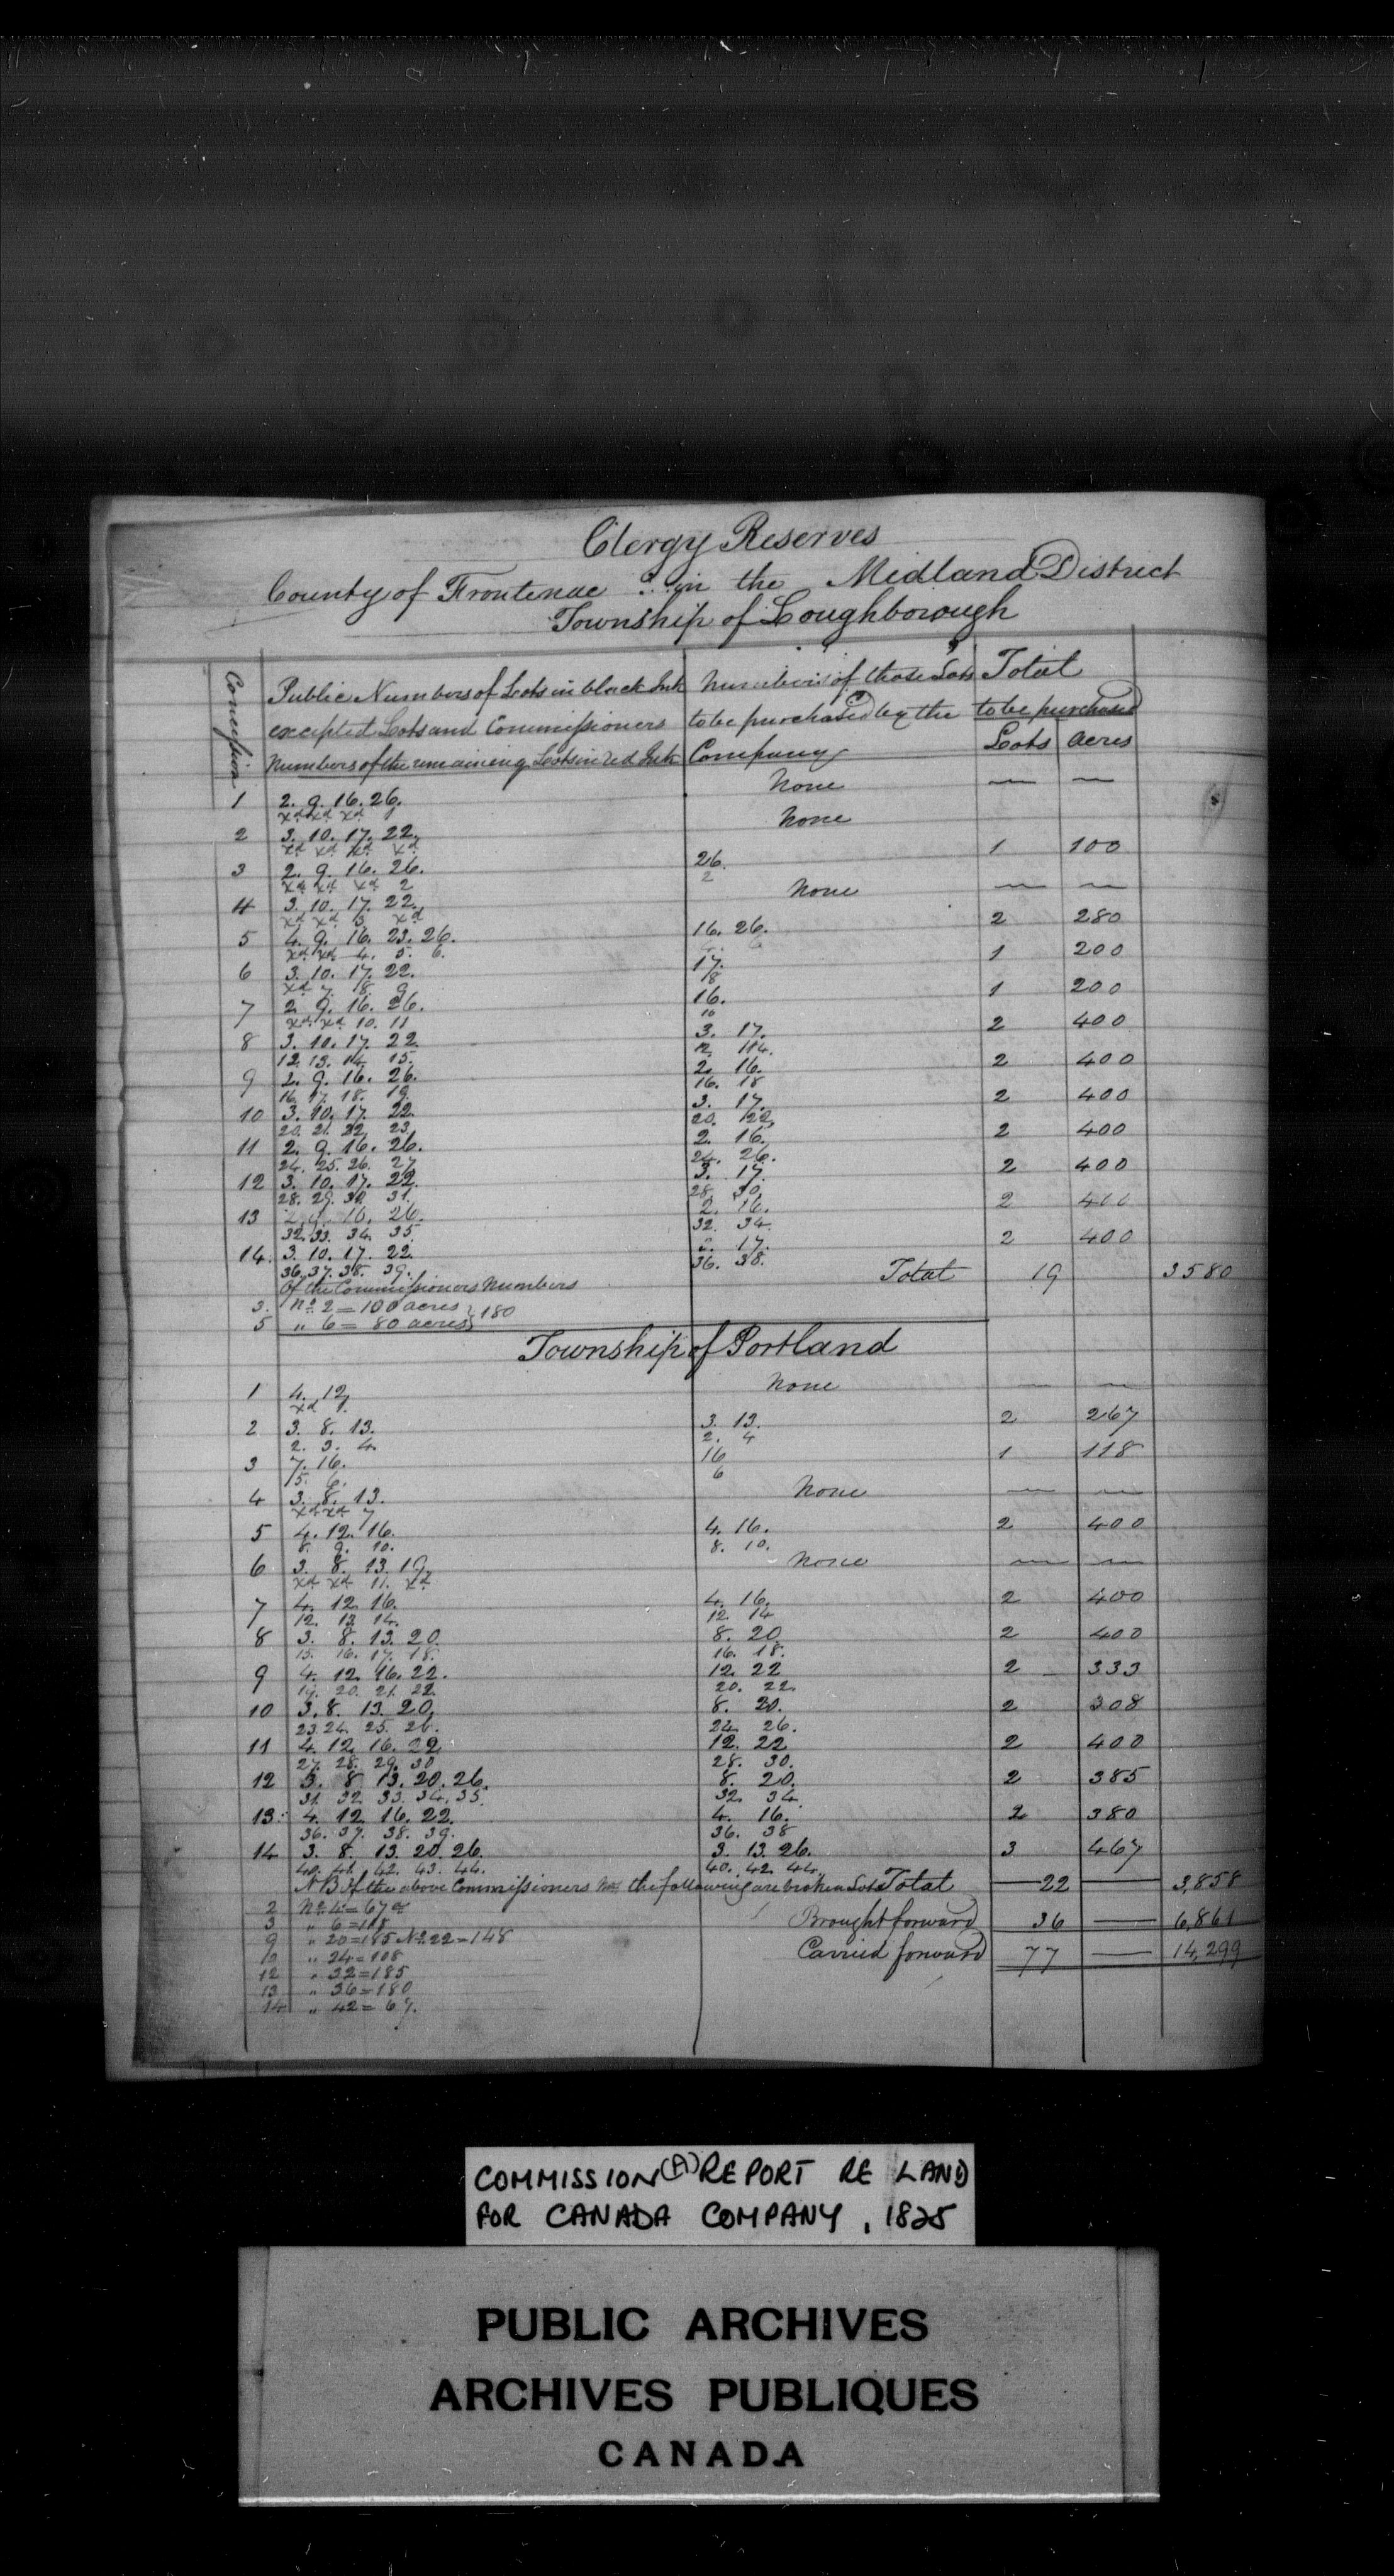 Clergy Reserves
County of Frontenac in the Midland District
Township of Loughborough
Concession
Public Numbers of Lots in black Ink Numbers of those Lots Total
excepted Lots and Commissioners to be purchased by the to be purchased
Numbers of the remaining Lots in red Ink Company Lots acres
1 2. 9. 16. 26. None — —
xd xd xd
2 3. 10. 17. 22. None
xd xd xd xd
3 2. 9. 16. 26. 26. 1 100
xd xd xd 2 2
4 3. 10. 17. 22. None — —
xd xd 3 xd
5 4. 9. 16. 23. 26. 16. 26. 2 280
xd xd 4. 5. 6.
6 3. 10. 17. 22. 17. 1 200
xd 7. 8. 9 8
7 2. 9. 16. 26. 16. 1 200
xd xd 10. 11 10
8 3. 10. 17. 22. 3. 17. 2 400
12. 13. 14. 15. 12. 14.
9 2. 9. 16. 26. 2. 16. 2 400
16. 17. 18. 19. 16. 18
10 3. 10. 17. 22. 3. 17. 2 400
20. 21. 22. 23. 20. 22.
11 2. 9. 16. 26. 2. 16. 2 400
24. 25. 26. 27 24. 26.
12 3. 10. 17. 22. 3. 17. 2 400
28. 29. 30. 31. 28. 30.
13 2. 9. 16. 26. 2. 16. 2 400
32. 33. 34. 35. 32. 34.
14. 3. 10. 17. 22. 17. 2 400
36. 37. 38. 39. 36. 38.
Of the Commissioners Numbers Total 19 3580
3. No 2 = 100 acres } 180
5 „ 6 = 80 acres }
Township of Portland
1 4. 12. None — —
xd 1.
2 3. 8. 13. 3. 13. 2 267
2. 3. 4. 2. 4
3 7. 16. 16 1 118
5. 6. 6
4 3. 8. 13. None — —
xd xd 7
5 4. 12. 16. 4. 16. 2 400
8. 9. 10. 8. 10.
6 3. 8. 13. 19. None — —
xd xd 11. xd
7 4. 12. 16. 4. 16. 2 400
12. 13. 14. 12. 14
8 3. 8. 13. 20. 8. 20 2 400
15. 16. 17. 18. 16. 18.
9 4. 12. 16. 22. 12. 22 2 333
19. 20. 21. 22. 20. 22.
10 3. 8. 13. 20. 8. 20. 2 308
23. 24. 25. 26. 24. 26.
11 4. 12. 16. 22 12. 22 2 400
27. 28. 29. 30 28. 30.
12 3. 8 13. 20. 26. 8. 20. 2 385
31. 32. 33. 34. 35. 32. 34.
13. 4. 12. 16. 22. 4. 16. 2 380
36. 37. 38. 39. 36. 38
14 3. 8. 13. 20. 26. 3. 13. 26. 3 467
40. 41. 42. 43. 44. 40. 42. 44.
NB of the above Commissioners Nos the following are broken Lots Total 22 — 3,858
2 No 4 = 67
3 „ 6 = 118 Brought forward 36 — 6,861
9 „ 20 = 185 No 22 = 148
10 „ 24 = 108 Carried forward 77 — 14,299
12 „ 32 = 185
13 „ 36 = 180
14 „ 42 = 67.
COMMISSION (A) REPORT RE LAND
FOR CANADA COMPANY, 1825
PUBLIC ARCHIVES
ARCHIVES PUBLIQUES
CANADA